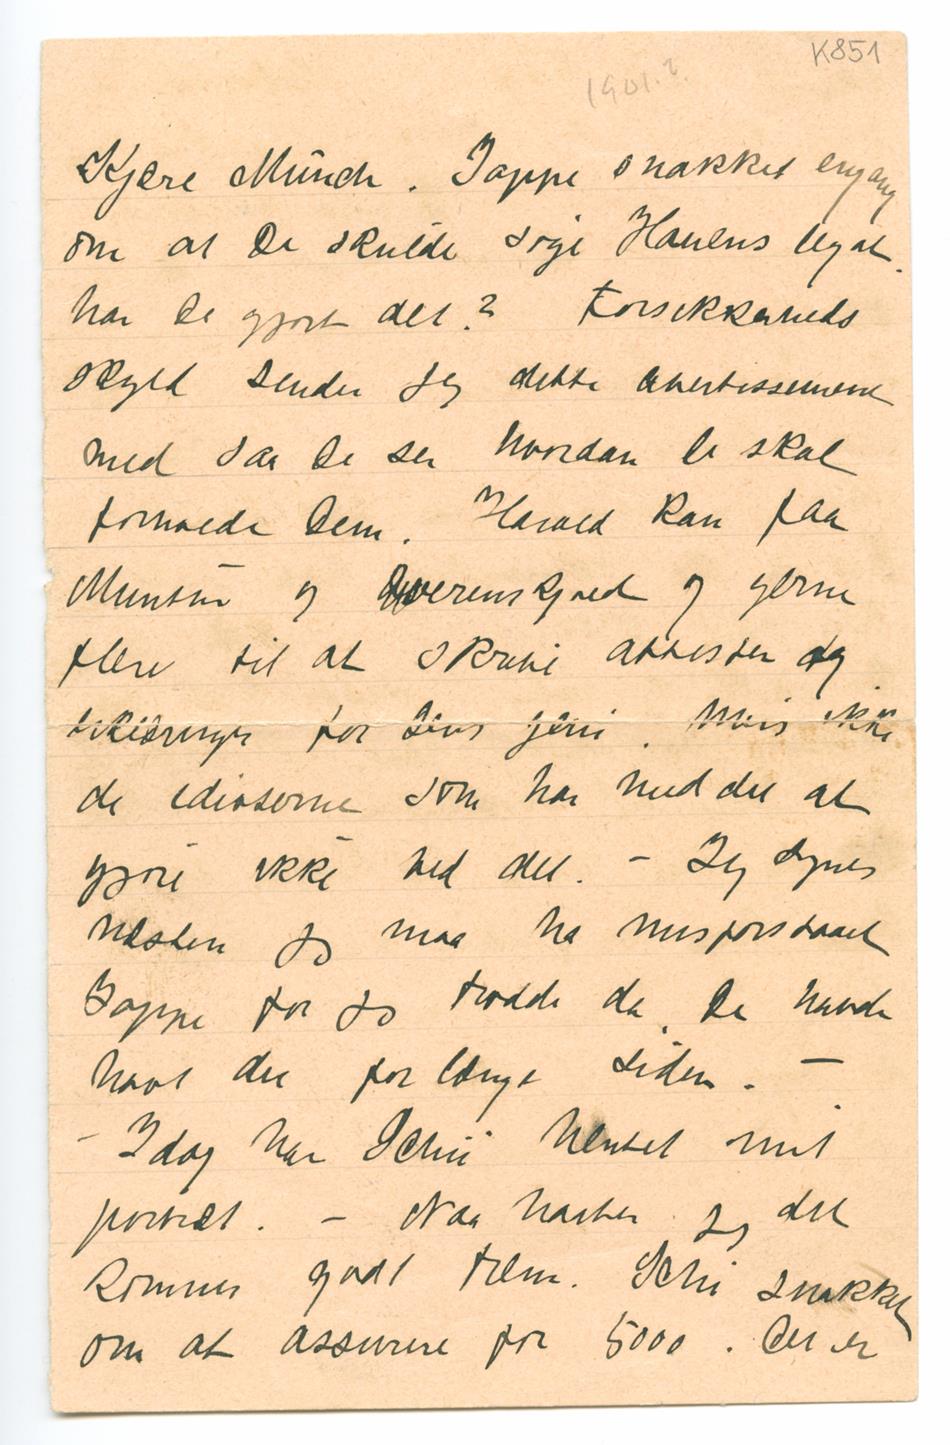 K851
1901.?
Kjære Munch. Jappe snakket engang
om at De skulde søge Henens legat.
har De gjort det? Forsikkerheds
skyld sender jeg dette avertissement
med saa De ser hvordan De skal
forholde Dem. Harald kan faa
Munthe og Werenskjold og gjerne
flere til at skrive attester og
erklæringer for Deres geni. Hvis ikke
de idioterne som har med det at
gjøre ikke ved det. – Jeg synes
næsten jeg maa ha misforstaaet
Jappe for jeg trodde da De havde
havt det for længe siden. –
– Idag har Schii hentet mit
portræt. – Naa haaber jeg det
kommer godt frem. Schi snakket
om at assurere for 5000. Det er